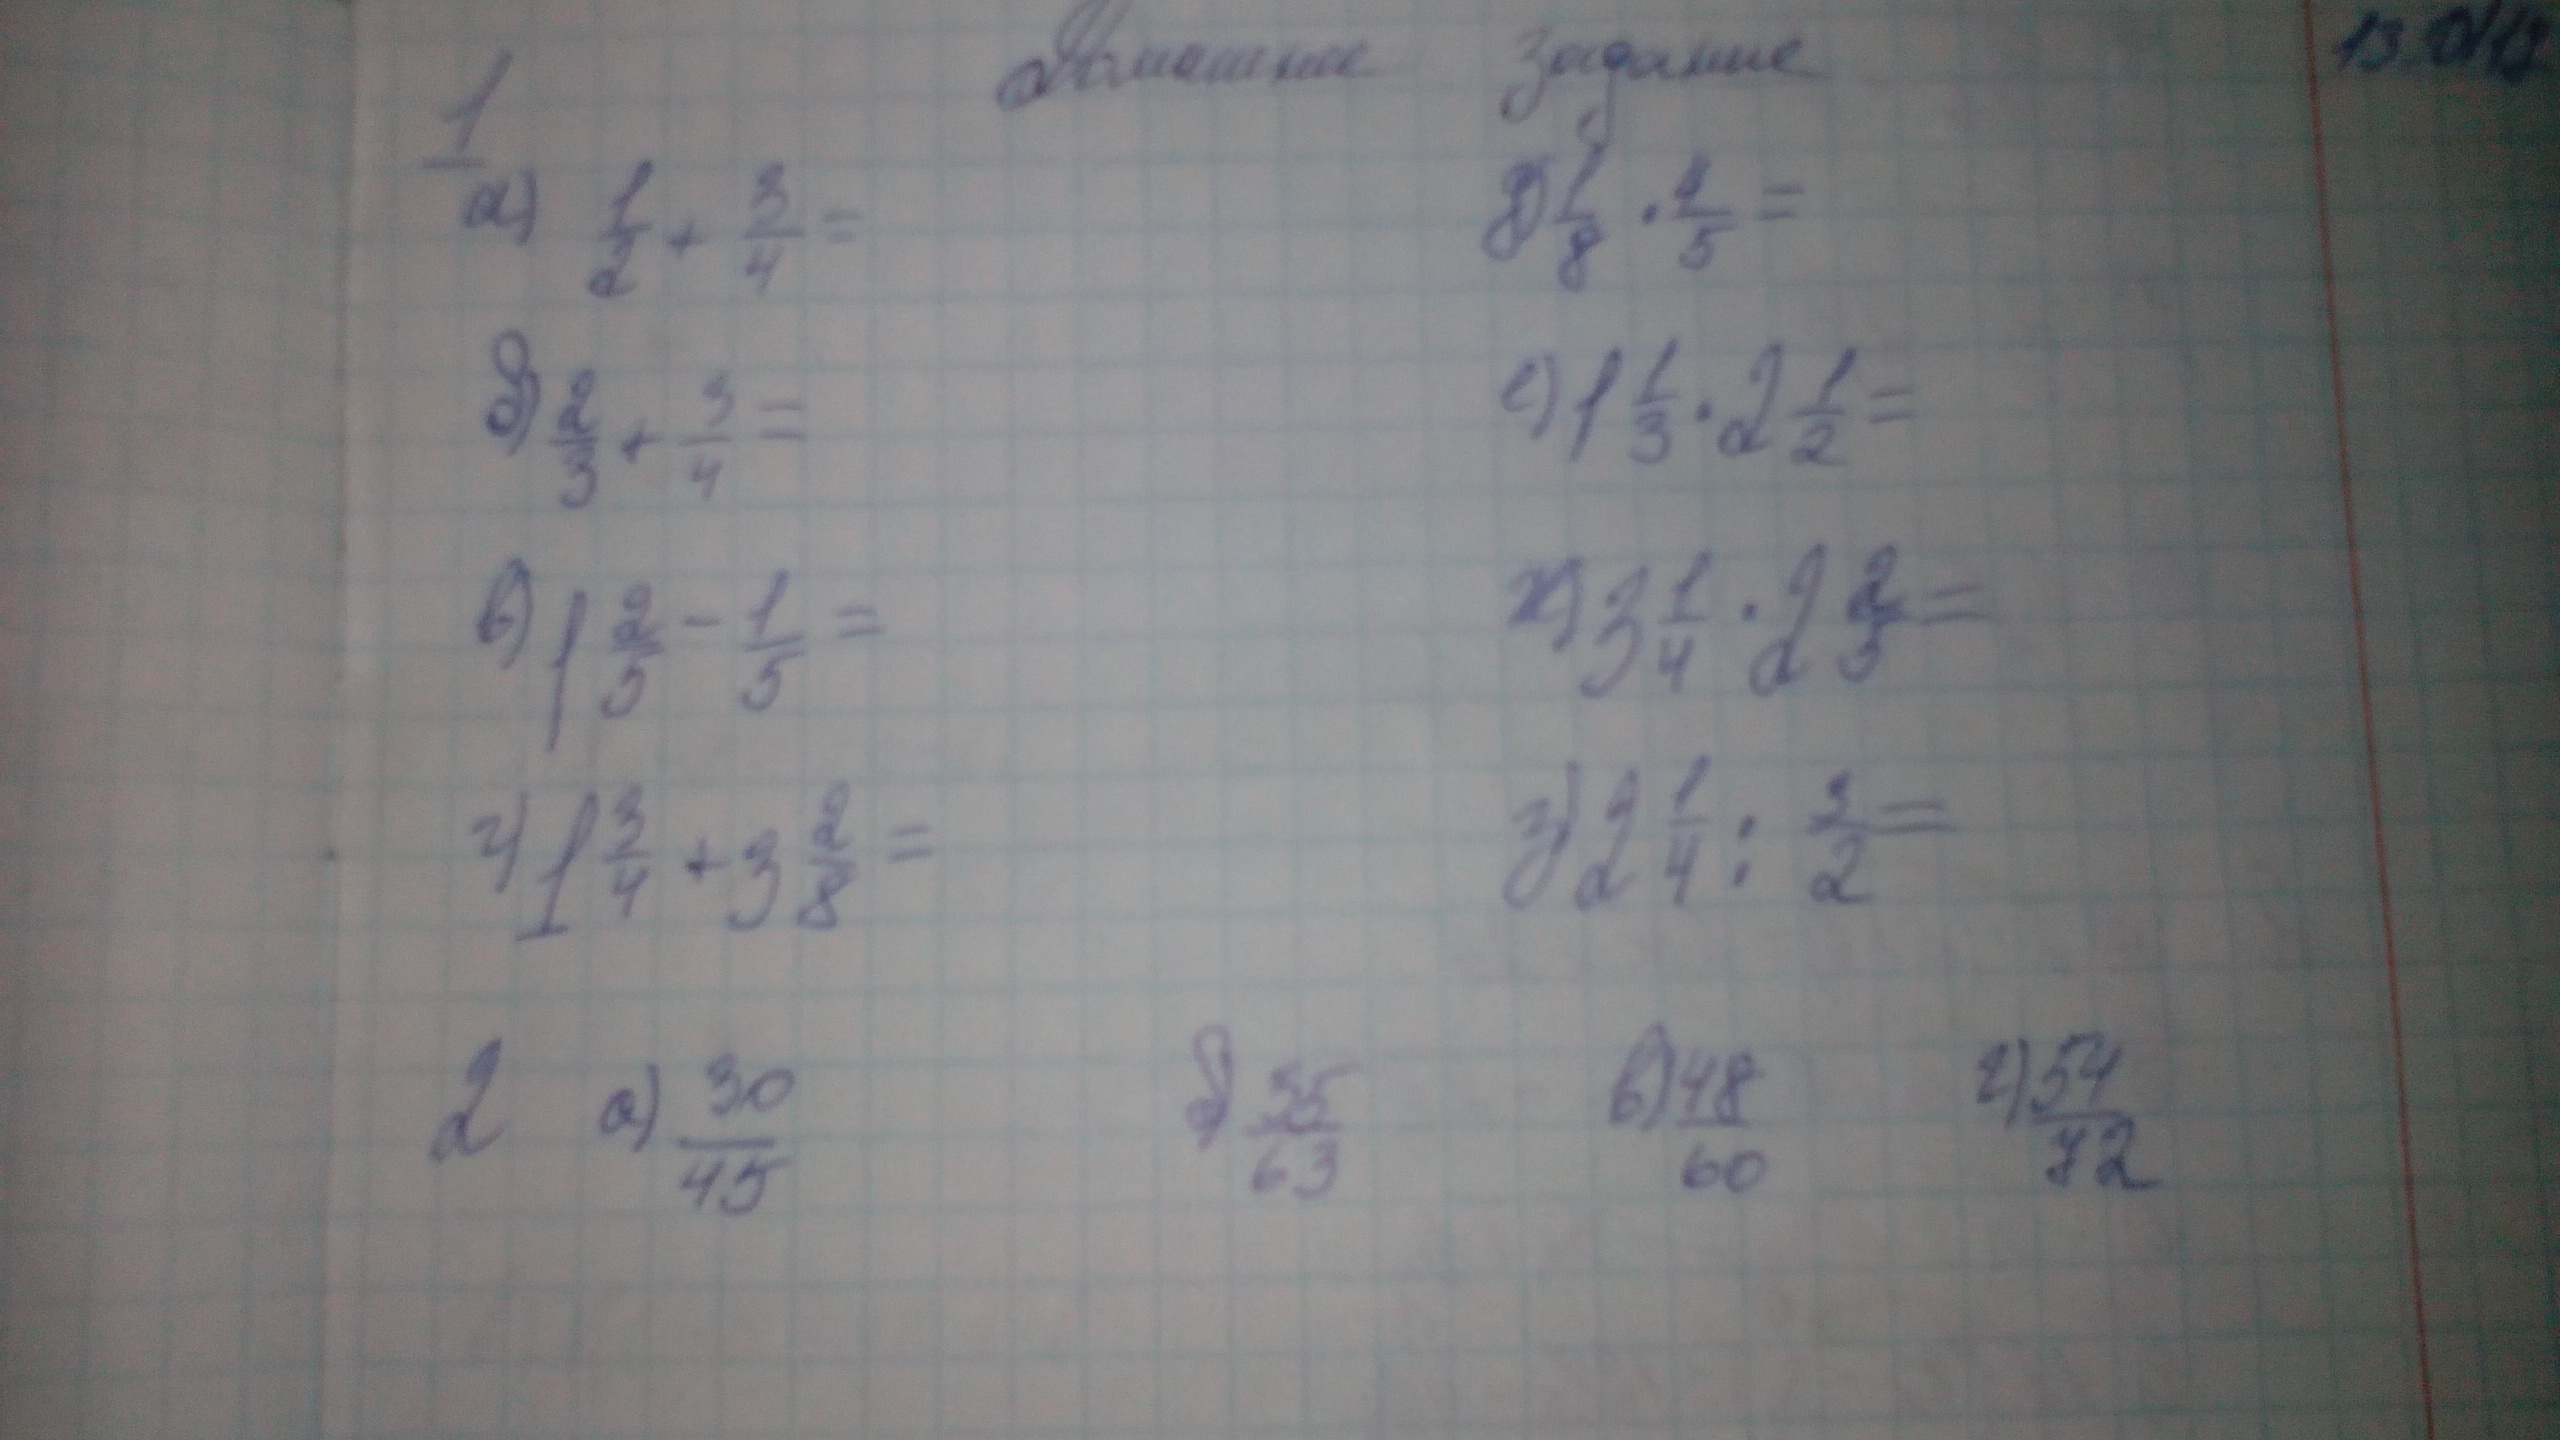 Домашние задание
1
а) 1/2 + 3/4 =
б) 2/3 + 3/4 =
в) 1 2/5 - 1/5 =
г) 1 3/4 + 3 2/8 =
д) 1/8 · 4/5 =
е) 1 1/3 · 2 1/2 =
ж) 3 1/4 · 2 2/5 =
з) 2 1/4 : 3/2 =
2 а) 30/45 б) 35/63 в) 48/60 г) 54/72